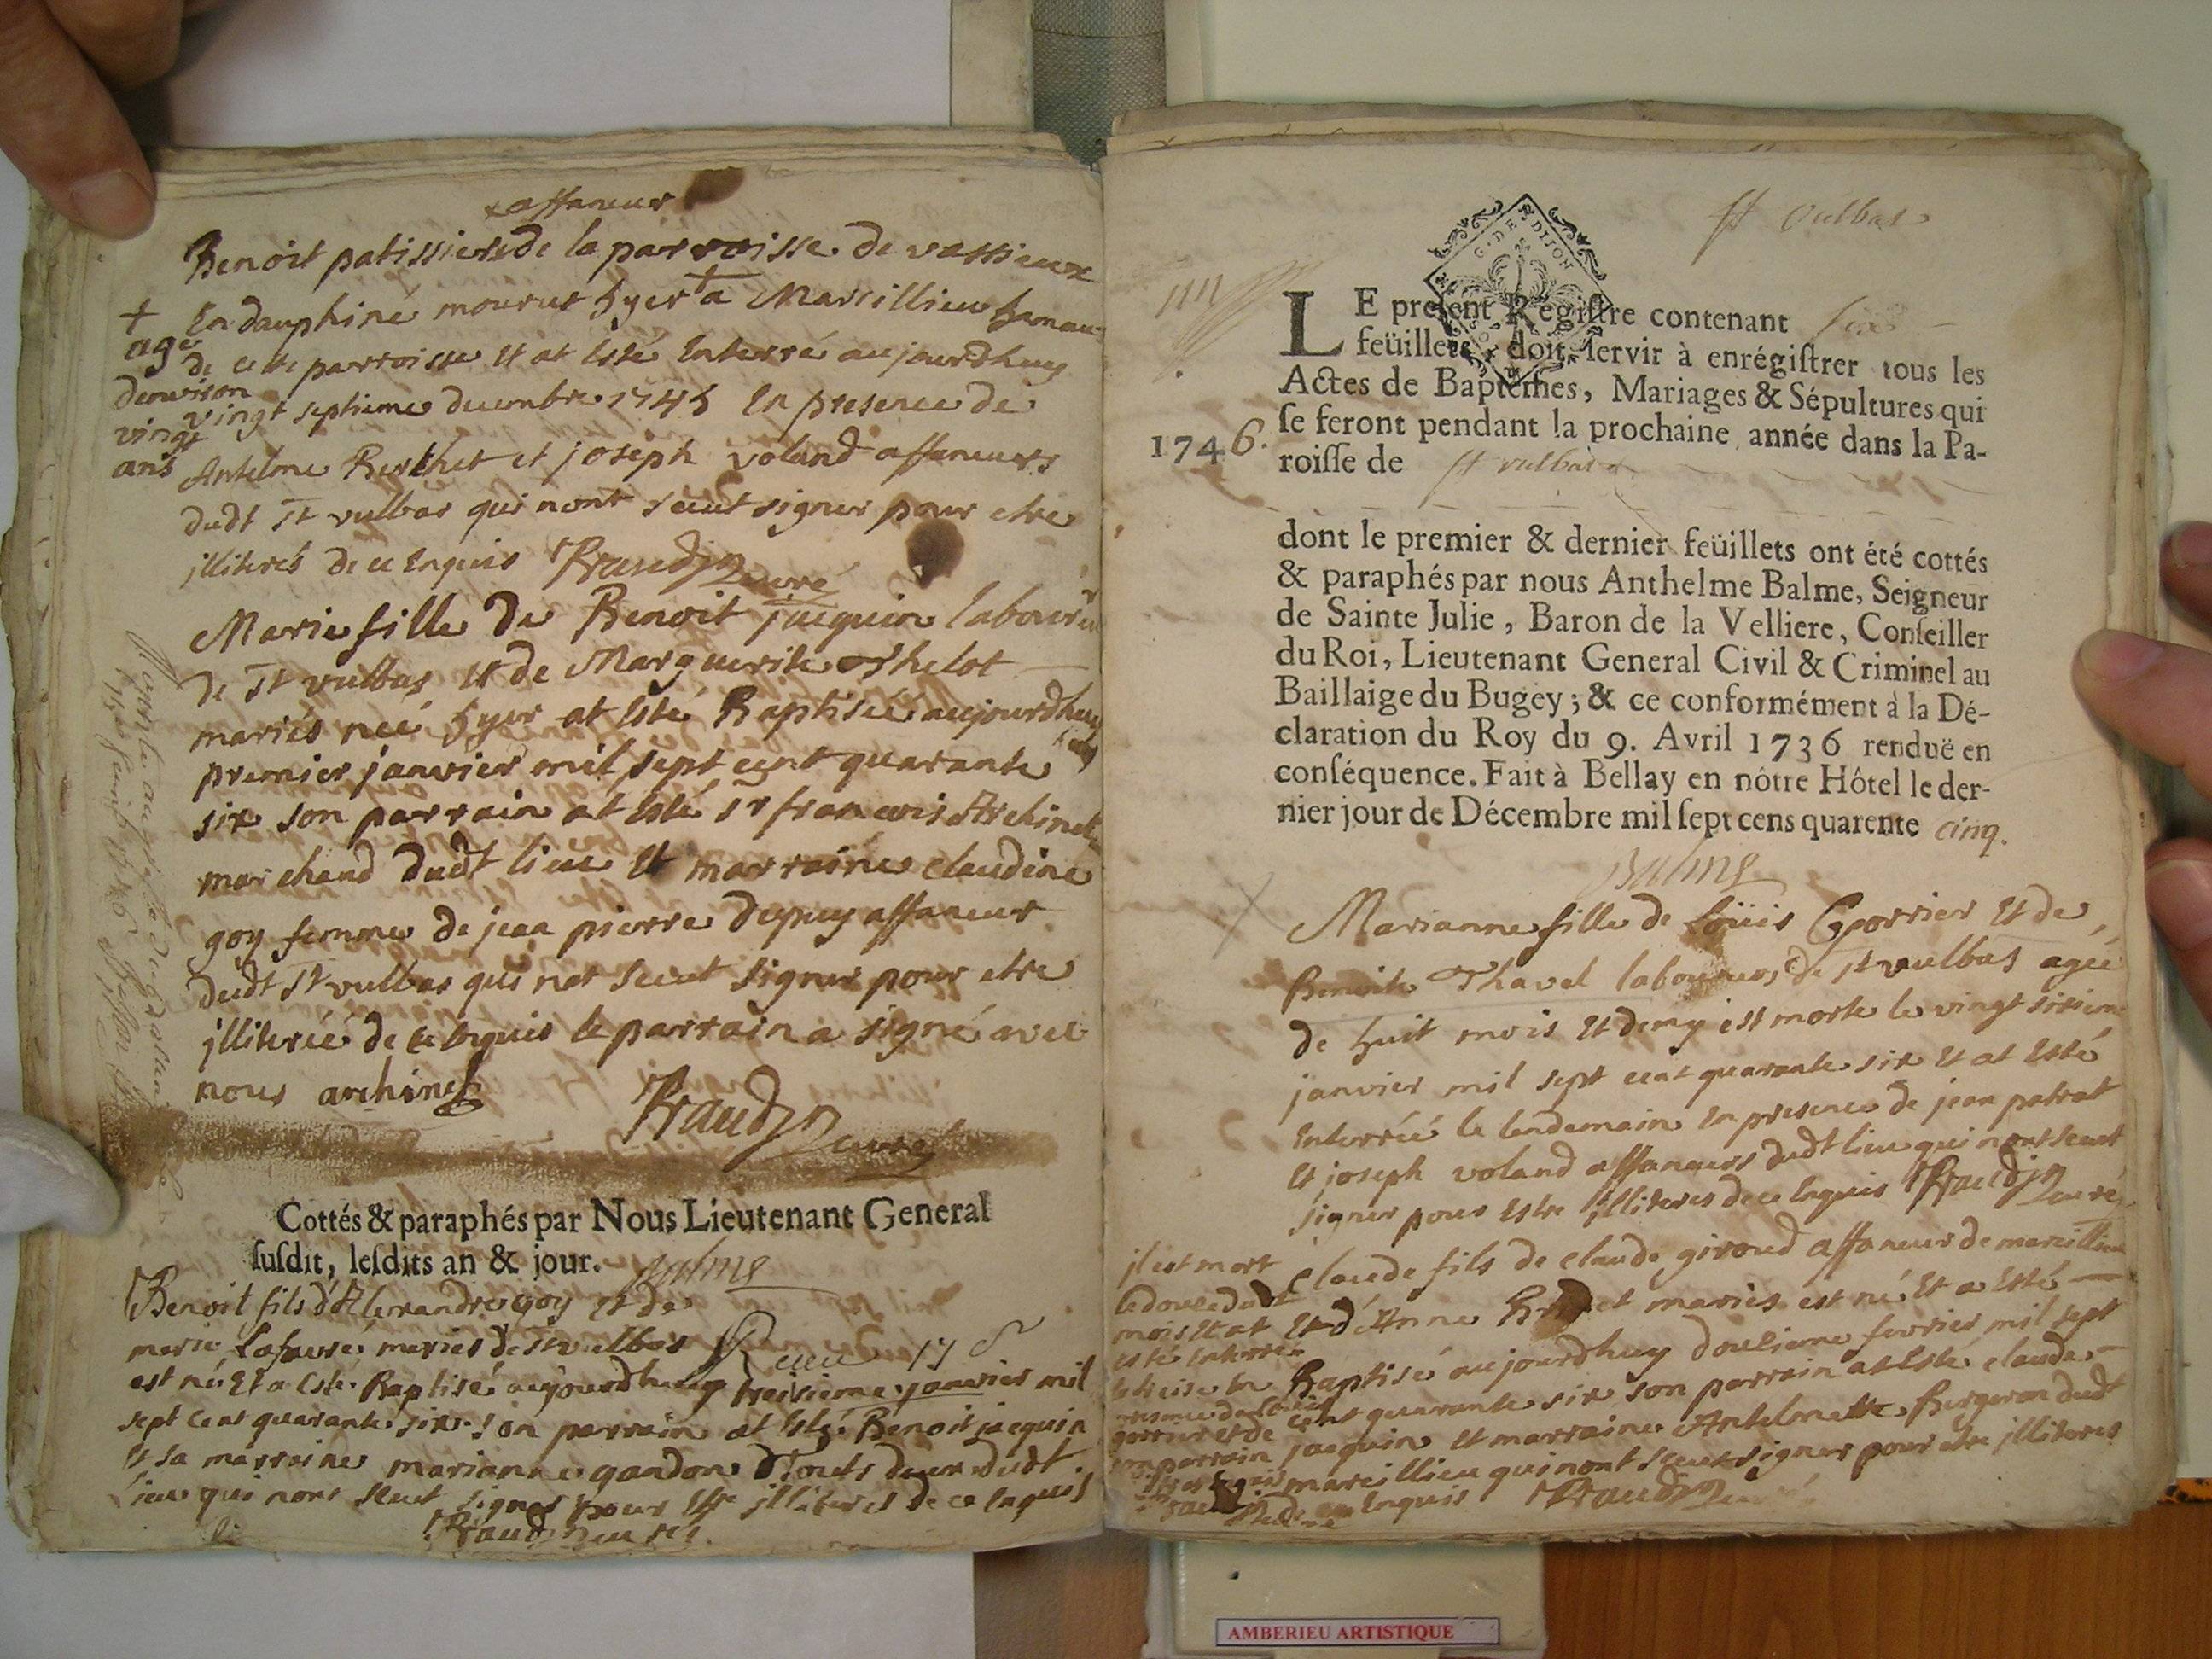 x affaneur
Benoit patissier de la parroisse de vassieux
En dauphiné mourut hyer + a Marcillieu hameau
+ agé denviron vingt ans
de cette parroisse et at esté Enterré aujourdhuy
vingt septieme decembre 1745 En presence de
Antelme Berthet et joseph voland affaneurs
dudt St vulbas qui nont sceut signer pour etre
jlliterés de ce Enquis Fraudin curé
Marie fille de Benoit jacquin laboureur
de St vulbas et de Marguerite Thelot
mariés neé hyer at esté Baptiseé aujourdhuy
premier janvier mil sept cent quarante
six son parrain at esté sr francois Archinet
marchand dudt lieu Et marraine claudine
goy femme de jean pierre dupuy affaneur
dudt St vulbas qui nat sceut signer pour etre
jlliterée de ce Enquis le parrain a signé avec
nous archinet
Fraudin curé
Cottés & paraphés par Nous Lieutenant General
susdit, lesdits an & jour. Balme
Benoit fils d'Alexandre goy et de
marie Lafauré mariés de st vulbas
est né Et a Esté Baptisé aujourdhuy treisieme janvier mil
sept cent quarante six son parrain at Esté Benoit jacquin
Et sa marraine marianne gandon dudt
lieu qui nont sceut signer pour Estre jlliterés de ce Enquis
Fraudin curé
St Vulbas
LE present Registre contenant six
feüillets, doit servir à enrégistrer tous les
Actes de Baptêmes, Mariages & Sépultures qui
se feront pendant la prochaine année dans la Pa-
1746.
roisse de St vulbas
G. DE DIJON
dont le premier & dernier feüillets ont été cottés
& paraphés par nous Anthelme Balme, Seigneur
de Sainte Julie, Baron de la Velliere, Conseiller
du Roi, Lieutenant General Civil & Criminel au
Baillaige du Bugey; & ce conformément à la Dé-
claration du Roy du 9. Avril 1736 renduë en
conséquence. Fait à Bellay en nôtre Hôtel le der-
nier jour de Décembre mil sept cens quarente cinq.
Balme
Marianne fille de Loüis Gporrier Et de
Benoite Thavel laboureurs de st vulbas ageé
de huit mois Et demy est morte le vingt sixieme
janvier mil sept cent quarante six Et at Esté
Enterreé le lendemain En presence de jean patrat
Et joseph voland affaneurs dudt lieu qui nont sceut
signer pour Estre jlliteres de ce Enquis Fraudin curé
claude fils de claude giroud affaneur de marcillieu
Et d'Anne mariés est né Et a Esté
Baptisé aujourdhuy douzieme fevrier mil sept
cent quarante six son parrain at Esté claude
jacquin Et marraine Antelmette Bergeron dudt
marcillieu qui nont sceut signer pour etre jlliteres
de ce Enquis Fraudin curé
jl est mort
le douze dudt
mois Et at
esté Enterré
le treize En
AMBERIEU ARTISTIQUE